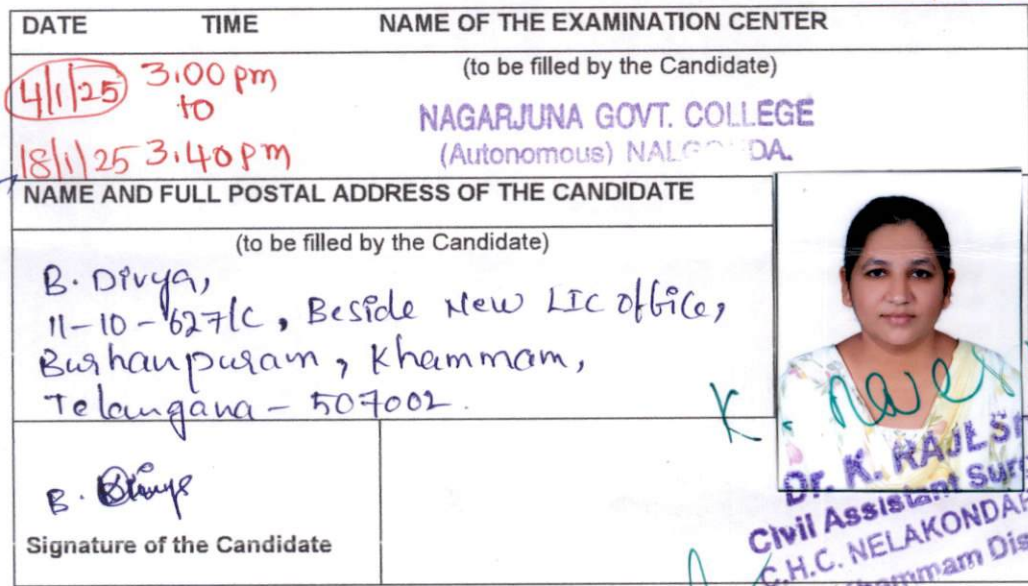 DATE TIME NAME OF THE EXAMINATION CENTER
(to be filled by the Candidate)
4/1/25 3.00 pm
to
18/1/25 3.40 pm
NAGARJUNA GOVT. COLLEGE
(Autonomous) NALGONDA.
NAME AND FULL POSTAL ADDRESS OF THE CANDIDATE
(to be filled by the Candidate)
B. Divya,
11-10-627/C, Beside New LIC office,
Burhanpuram, Khammam,
Telangana - 507002.
B. Divya
Signature of the Candidate
K.
Dr. K. RAJESH
Civil Assistant Sur
C.H.C. NELAKONDA
ammam Dis